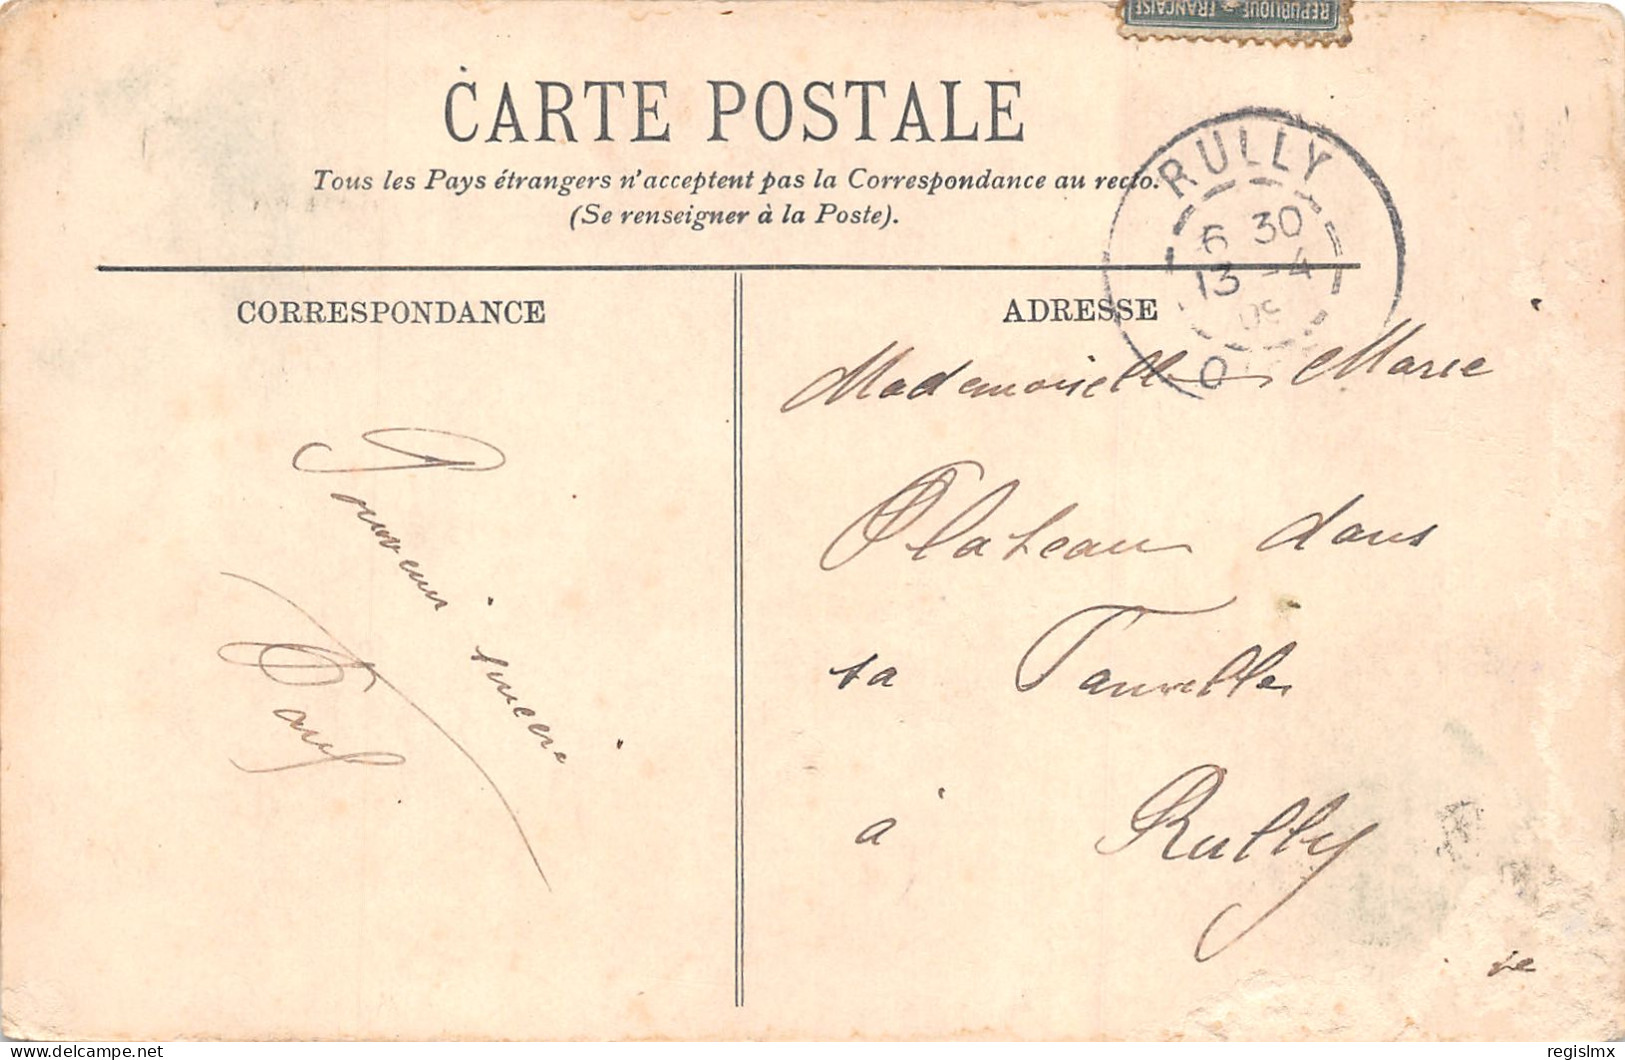 RÉPUBLIQUE FRANÇAISE
CARTE POSTALE
Tous les Pays étrangers n'acceptent pas la Correspondance au recto.
(Se renseigner à la Poste).
RULLY
6 30
13 - 4
09
O
CORRESPONDANCE
Souvenir sincère
Paul
ADRESSE
Mademoiselle Marie
Plateau dans
sa Famille
à Rully
se
regislmx